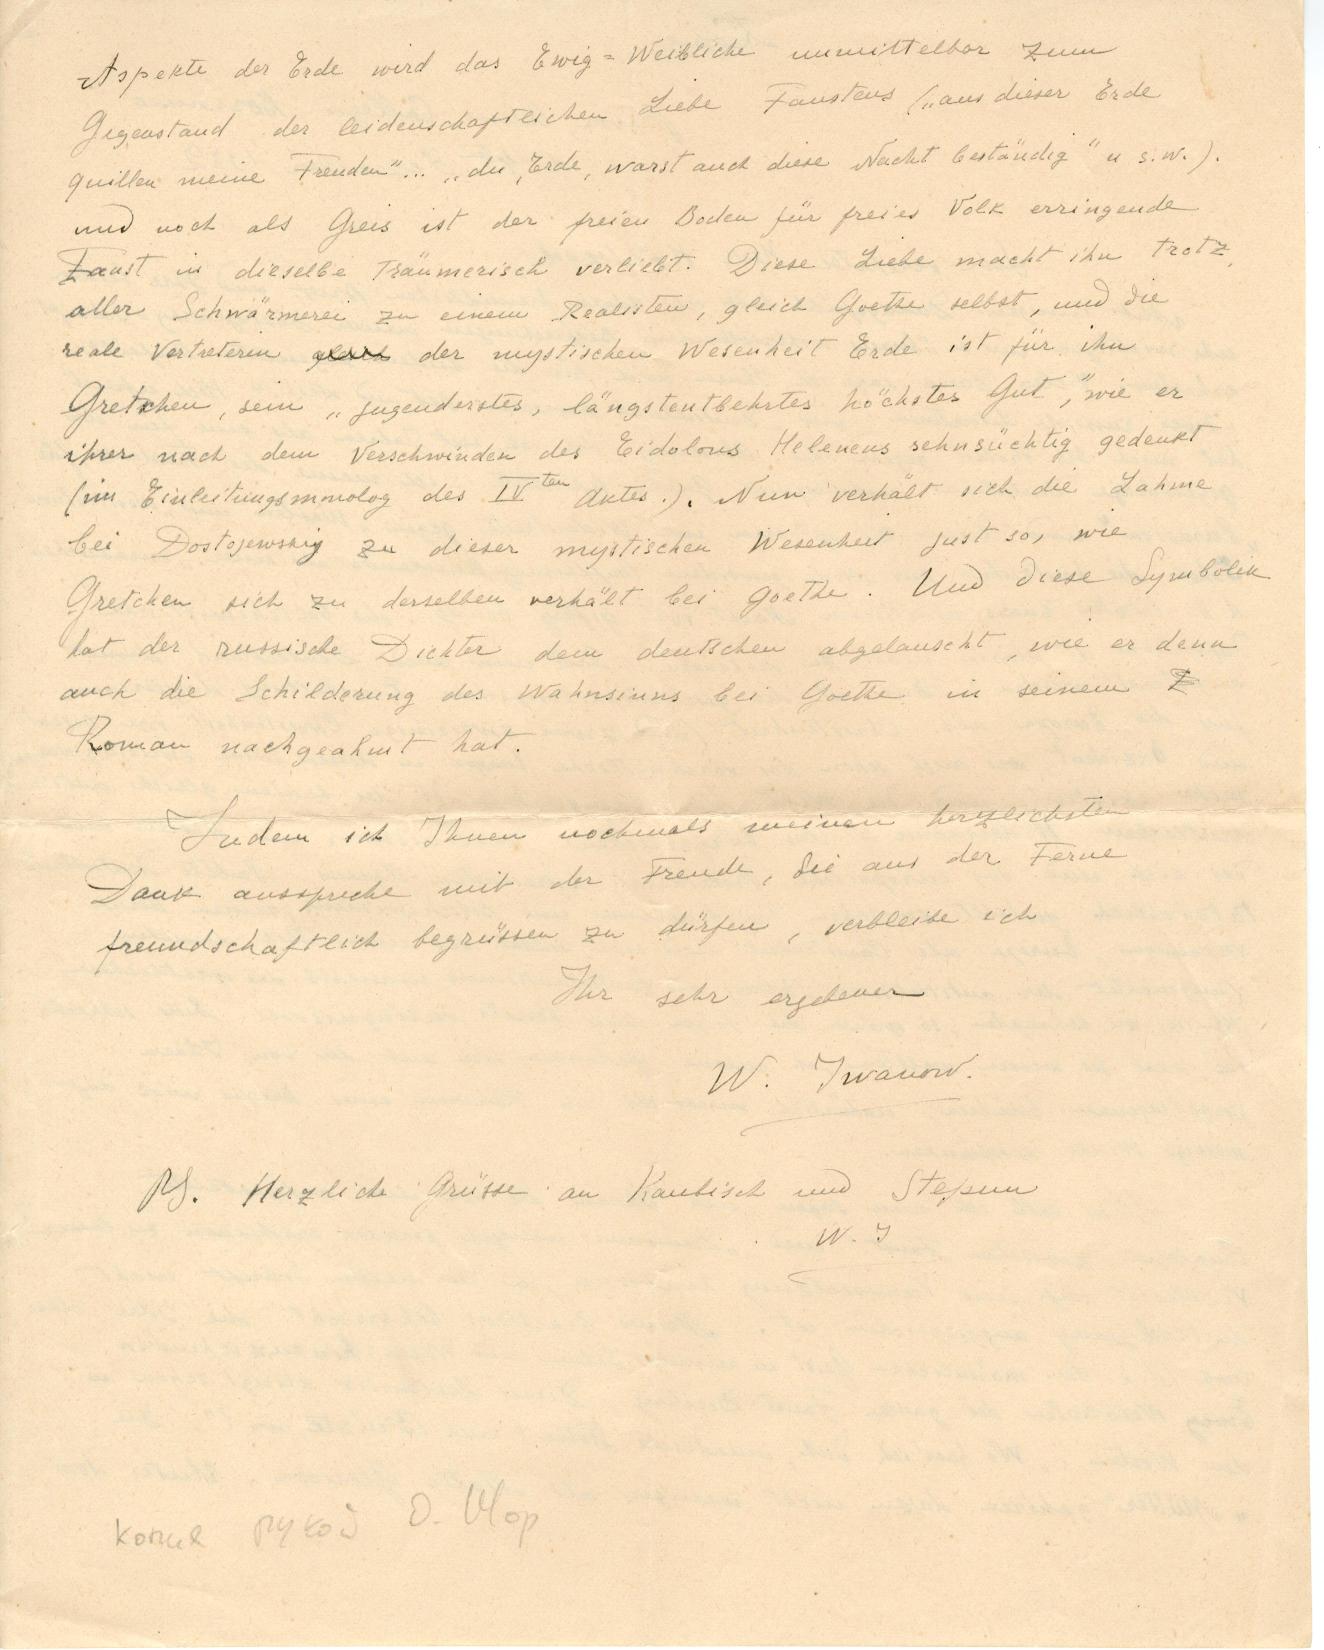 Aspekte der Erde wird das Ewig=Weibliche unmittelbar zum
Gegenstand der leidenschaftlichen Liebe Faustens („aus dieser Erde
quillen meine Freuden“... „du, Erde, warst auch diese Nacht beständig“ u s.w.).
und noch als Greis ist der freien Boden für freies Volk erringende
Faust in dieselbe träumerisch verliebt. Diese Liebe macht ihn trotz
aller Schwärmerei zu einem Realisten, gleich Goethe selbst, und die
reale Vertreterin der mystischen Wesenheit Erde ist für ihn
Gretchen, sein „jugenderstes, längstentbehrtes höchstes Gut“, wie er
ihrer nach dem Verschwinden des Eidolons Helenens sehnsüchtig gedenkt
(im Einleitungsmonolog des IVten Aktes.). Nun verhält sich die Lahme
bei Dostojewskij zu dieser mystischen Wesenheit just so, wie
Gretchen sich zu derselben verhält bei Goethe. Und diese Symbolik
hat der russische Dichter dem deutschen abgelauscht, wie er denn
auch die Schilderung des Wahnsinns bei Goethe in seinem
Roman nachgeahmt hat.
Indem ich Ihnen nochmals meinen herzlichsten
Dank ausspreche mit der Freude, Sie aus der Ferne
freundschaftlich begrüssen zu dürfen, verbleibe ich
Ihr sehr ergebener
W. Iwanow.
PS. Herzliche Grüsse an Kaubisch und Stepun
W. I
копия рукой О. Шор